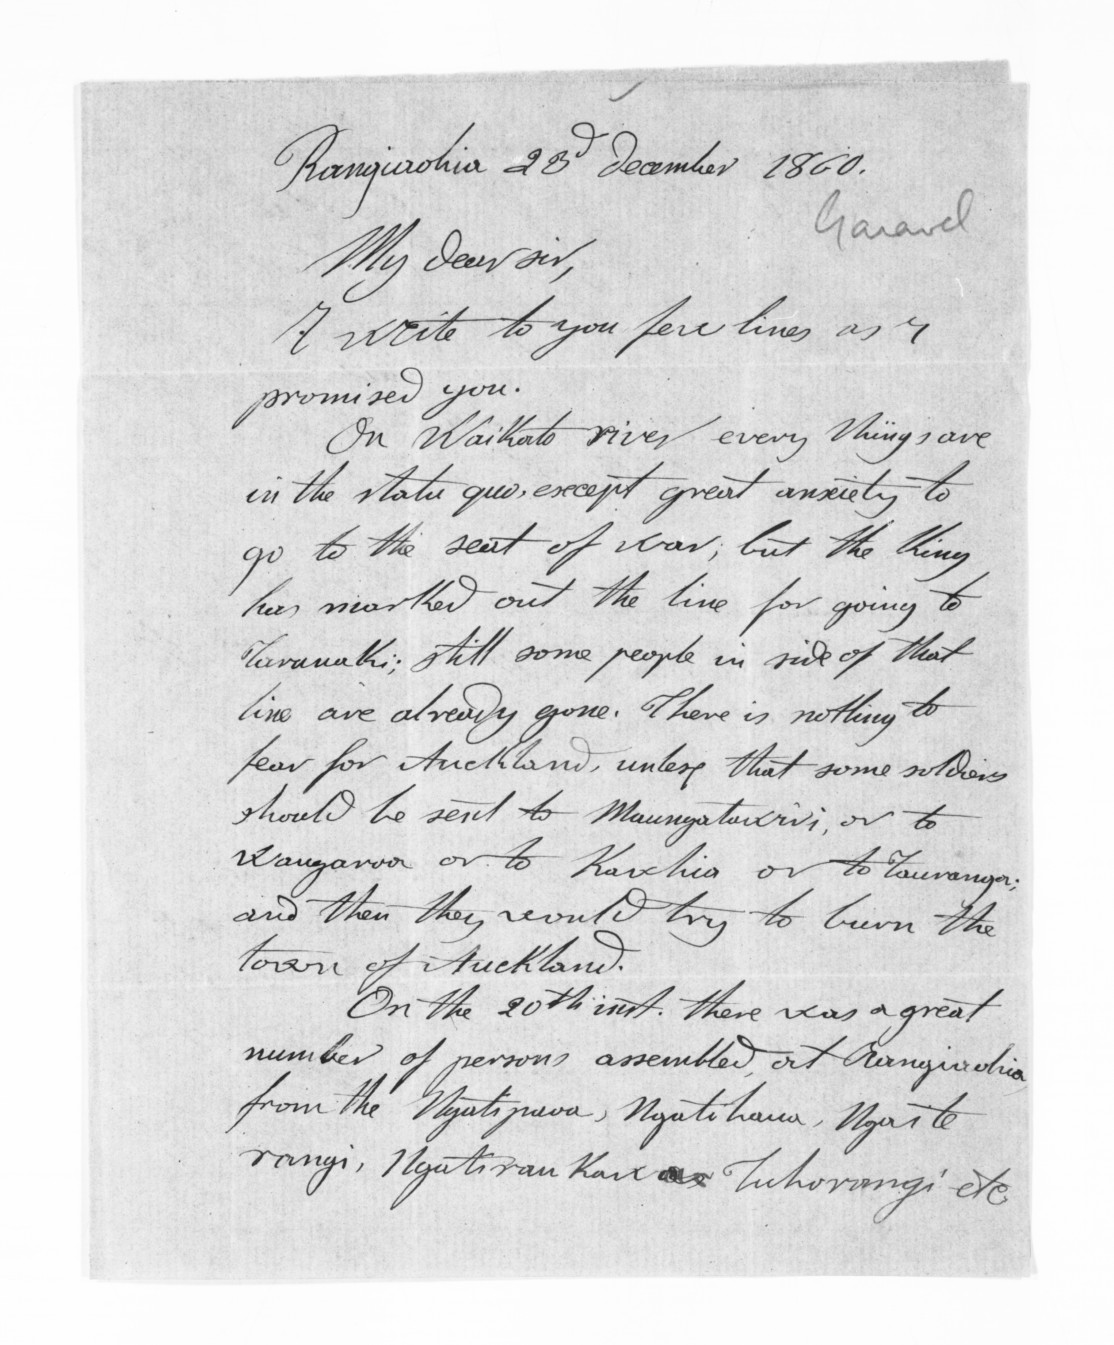 Rangiaohia 23d december 1860.
Garavel
My dear sir,
I write to you few lines as I
promised you.
On Waikato river every things are
in the statu quo, except great anxiety to
go to the seat of war; but the King
has marked out the line for going to
Taranaki; still some people in side of that
line are already gone. There is nothing to
fear for Auckland, unless that some soldiers
should be sent to Maungatawiri, or to
Wangaroa or to Kawhia or to Tauranga;
and then they would try to burn the
town of Auckland.
On the 20th inst. there was a great
number of persons assembled, at Rangiaohia,
from the Ngatipaoa, Ngatihaua, Ngaite
rangi, Ngatiraukawa Tuhorangi etc